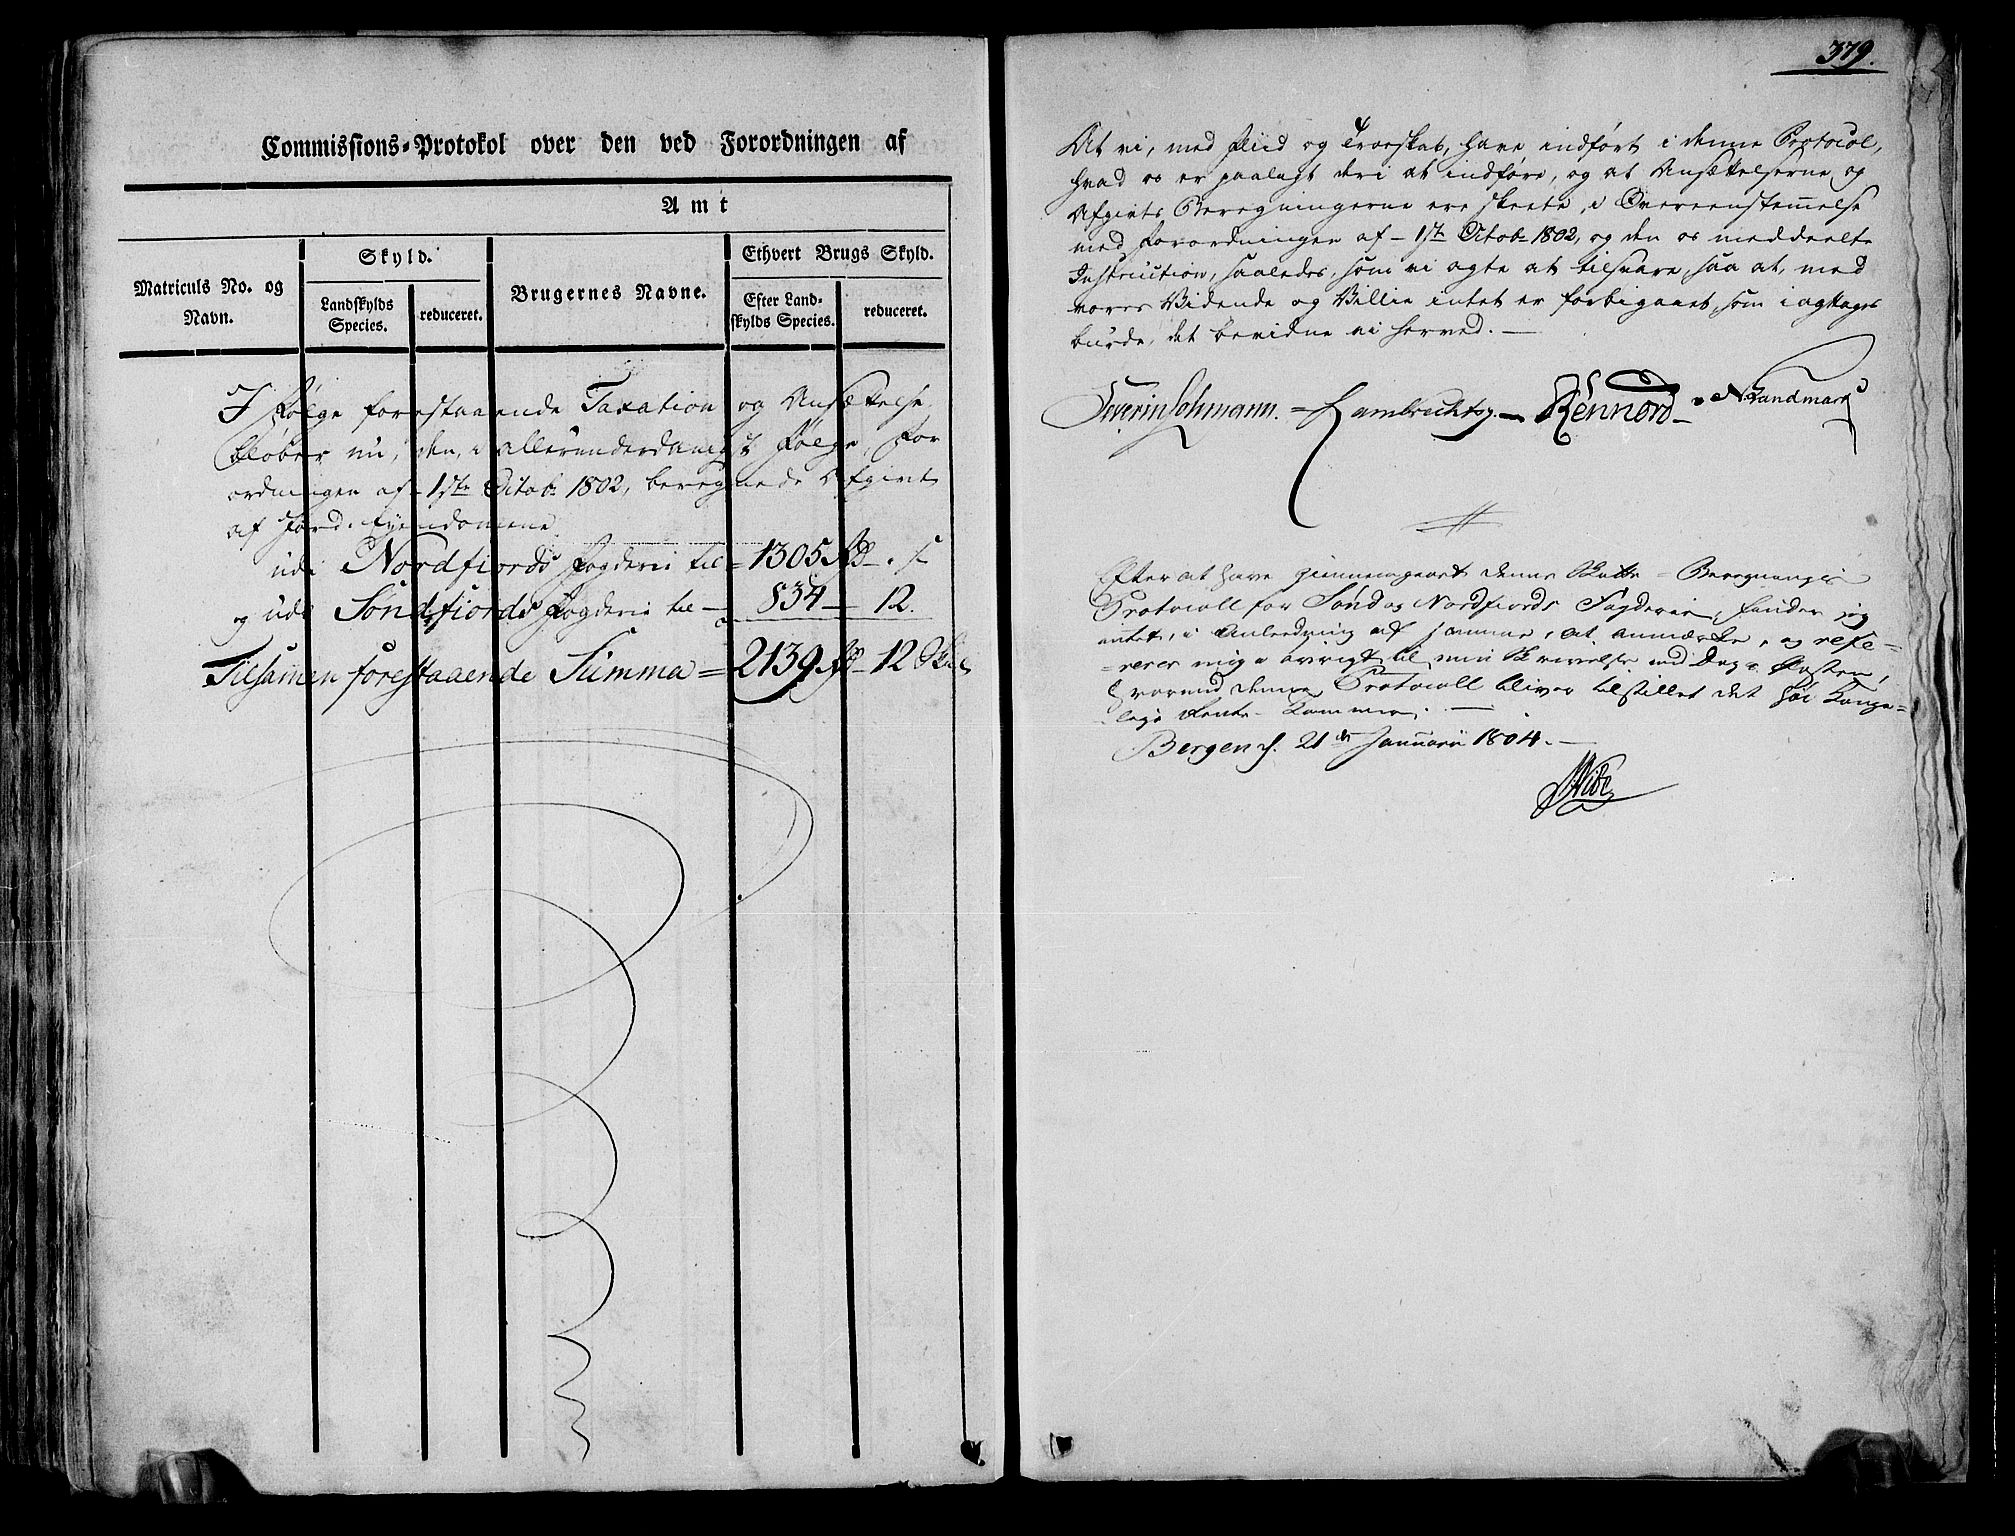 Commissions-Protokol over den ved Forordningen af
Amt
Matriculs No. og
Navn.
Skyld.
Landskylds
Species.
reduceret.
Brugernes Navne.
Ethvert Brugs Skyld.
Efter Land-
skylds Species.
reduceret.
I følge forestaaende Taxation og Ansættelse,
beløber nu, den, i allerunderdanigst Følge, For
ordningen af 1ste Octobr 1802, beregnede Afgivt
af Jord-Eyendomene
udi Nordfiords Fogderie til = 1305 Rd
og udi Søndfiords Fogderie til — 834 — 12.
Tilsamen forestaaende Summa = 2139 Rd — 12 Skil
379.
At vi, med Fliid og Troeskab, have indført i denne Protocol,
hvad os er paalagt deri at indføre, og at Ansættelserne og
Afgivts Beregningerne ere skeete, i Overeenstemmelse
med Forordningen af 1ste Octobr 1802, og den os meddeelte
Instruction, saaledes, som vi agte at tilsvare, saa at, med
vores Vidende og Villie intet er forbigaaet, som iagttages
burde, det bevidne vi herved. —
Severin Lohmann. = Lambrechts. — Rennord — N. Landmark
Efter at have giennemgaaet denne Skatte-Beregnings
Protocoll for Sønd og Nordfiords Fogderie, finder jeg
intet, i Anledning af samme, at anmærke, og refe=
=rerer mig i øvrigt til min Skrivelse med Dags Posten,
hvorved denne Protocoll bliver tilstillet det høi Konge=
lige Rente-Kammer. —
Bergen d. 21de Januarii 1804. —
Wibe